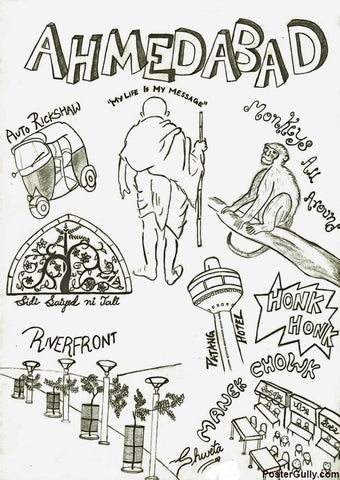 AHMEDABAD
"MY LIFE IS MY MESSAGE"
AUTO RICKSHAW
MONKEYS
ALL
AROUND
Sidi Saiyed ni Jali
PATANG
HOTEL
HONK
HONK
RIVERFRONT
MANEK CHOWK
Shweta
PosterGully.com